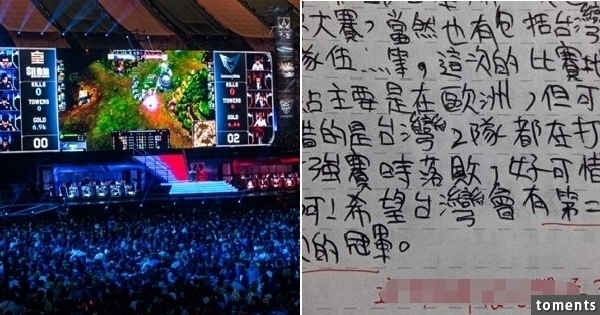 皇
KILLS
0
TOWERS
0
GOLD
6.9k
00
KILLS
0
TOWERS
0
GOLD
6.4k
02
大賽，當然也有包括台灣
隊伍，這次的比賽地
占主要是在歐洲，但可
惜的是台灣2隊都在打
強賽時落敗，好可惜
阿!希望台灣會有第二
的冠軍。
toments